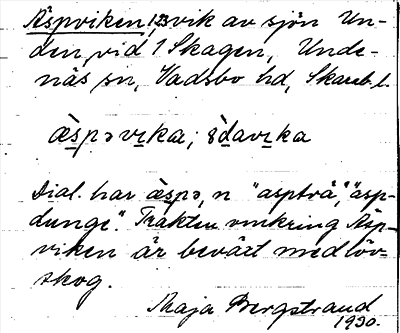 Äspviken, vik av sjön Un-
den, vid 1 Skagen, Unde-
näs sn, Vadsbo hd, Skarab. l.
æ̀spəvɪka;
Dial. har æ̀spə, n "aspträ", "äsp-
dunge". Trakten omkring Äsp-
viken är beväxt med löv-
skog.
Maja Bergstrand
1930.